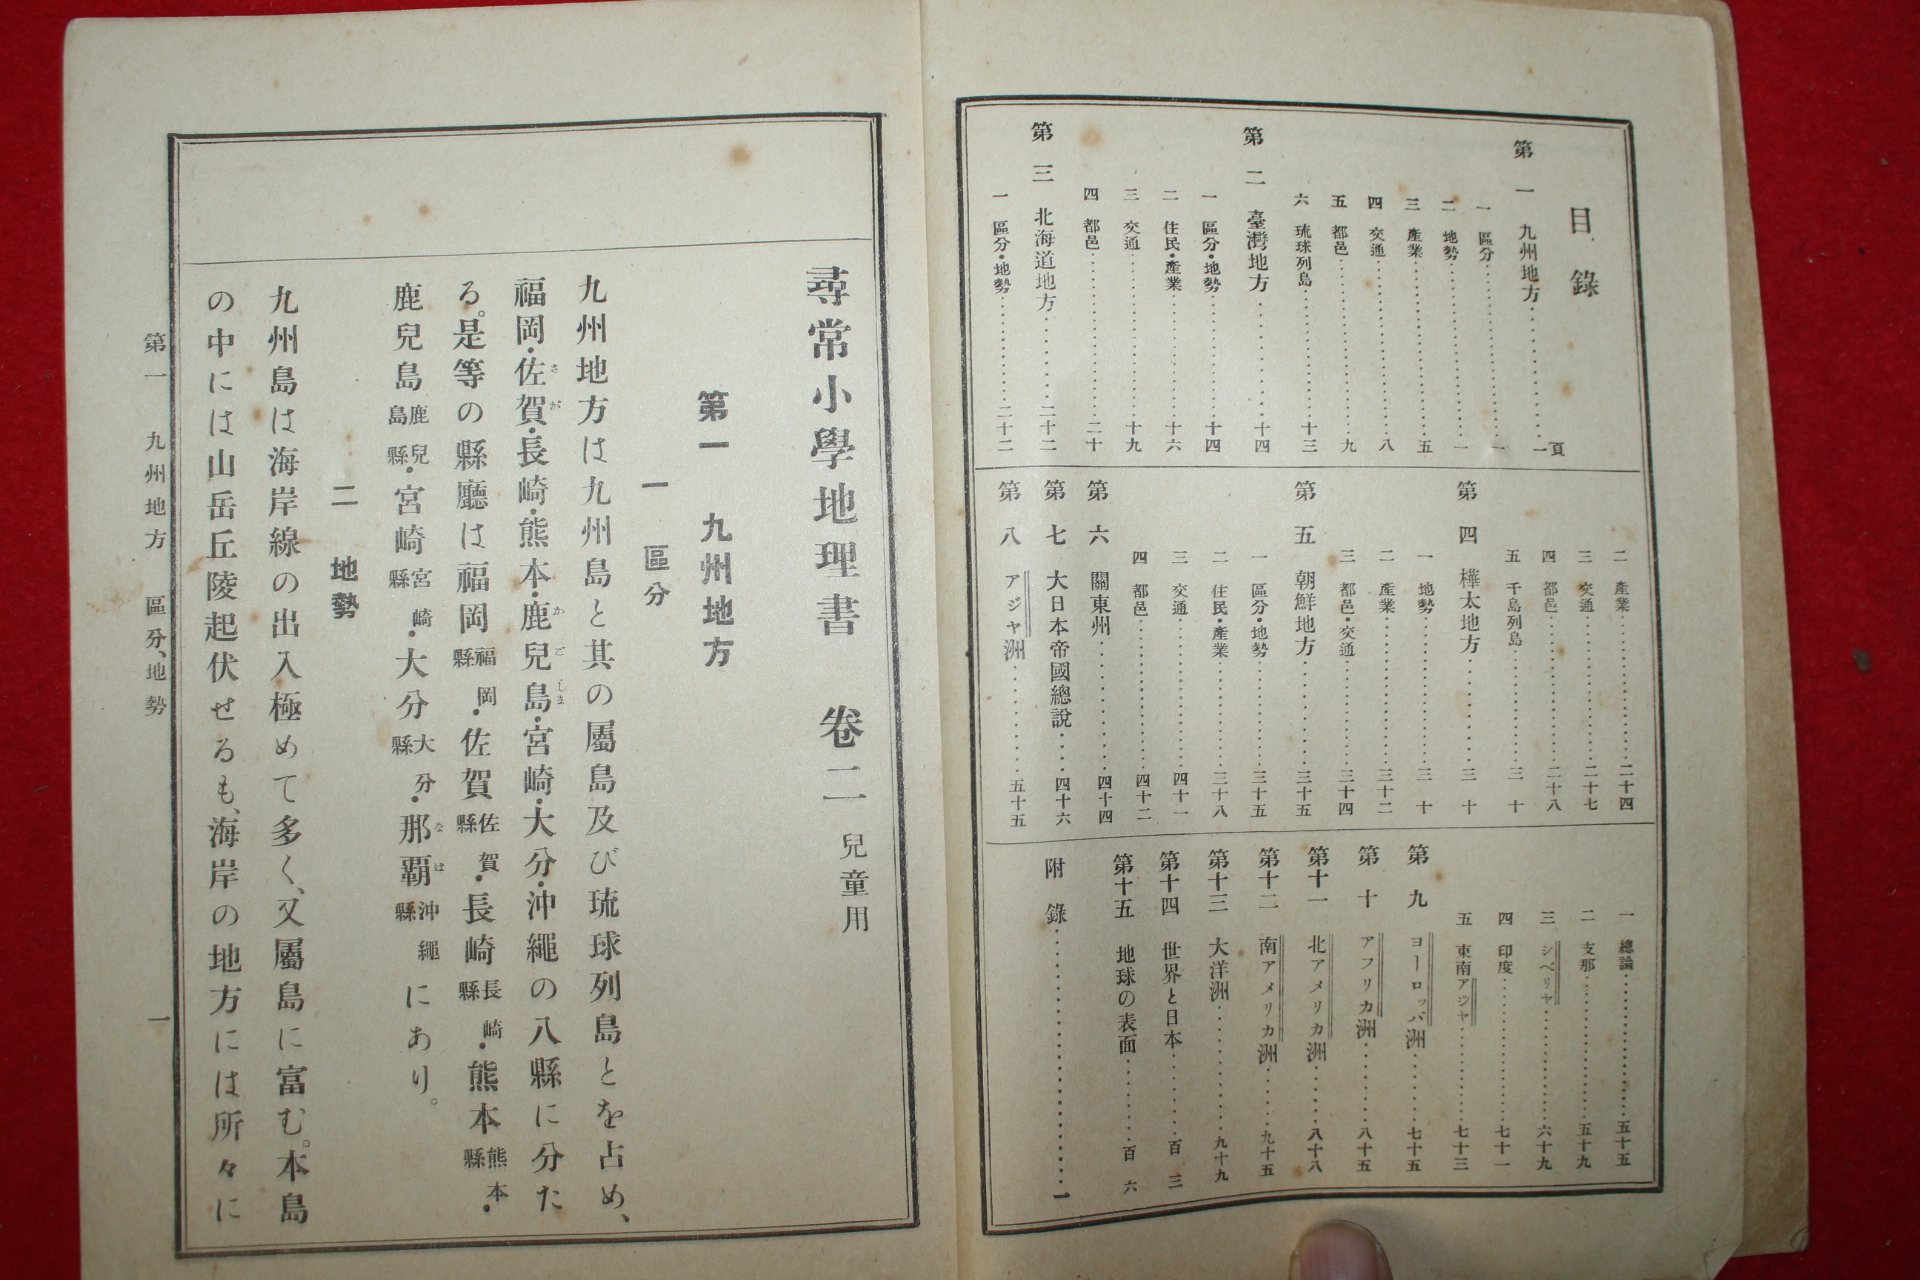 目錄
頁
第一 九州地方……一
一 區分……一
二 地勢……一
三 產業……五
四 交通……八
五 都邑……九
六 琉球列島……十三
第二 臺灣地方……十四
一 區分・地勢……十四
二 住民・產業……十六
三 交通……十九
四 都邑……二十
第三 北海道地方……二十二
一 區分・地勢……二十二
二 產業……二十四
三 交通……二十七
四 都邑……二十八
五 千島列島……三十
第四 樺太地方……三十
一 地勢……三十
二 產業……三十二
三 都邑・交通……三十四
第五 朝鮮地方……三十五
一 區分・地勢……三十五
二 住民・產業……三十八
三 交通……四十一
四 都邑……四十二
第六 關東州……四十四
第七 大日本帝國總說……四十六
第八 アジヤ洲……五十五
一 總論……五十五
二 支那……五十九
三 シベリヤ……六十九
四 印度……七十一
五 東南アジヤ……七十三
第九 ヨーロッパ洲……七十五
第十 アフリカ洲……八十五
第十一 北アメリカ洲……八十八
第十二 南アメリカ洲……九十五
第十三 大洋洲……九十九
第十四 世界と日本……百三
第十五 地球の表面……百六
附錄……一
尋常小學地理書 卷二 兒童用
第一 九州地方
一 區分
九州地方は九州島と其の屬島及び琉球列島とを占め、
福岡・佐賀・長崎・熊本・鹿兒島・宮崎・大分・沖繩の八縣に分た
る。是等の縣廳は福岡福岡縣・佐賀佐賀縣・長崎長崎縣・熊本熊本縣・
鹿兒島鹿兒島縣・宮崎宮崎縣・大分大分縣・那覇沖繩縣にあり。
二 地勢
九州島は海岸線の出入極めて多く、又屬島に富む。本島
の中には山岳丘陵起伏せるも、海岸の地方には所々に
第一 九州地方 區分、地勢 一